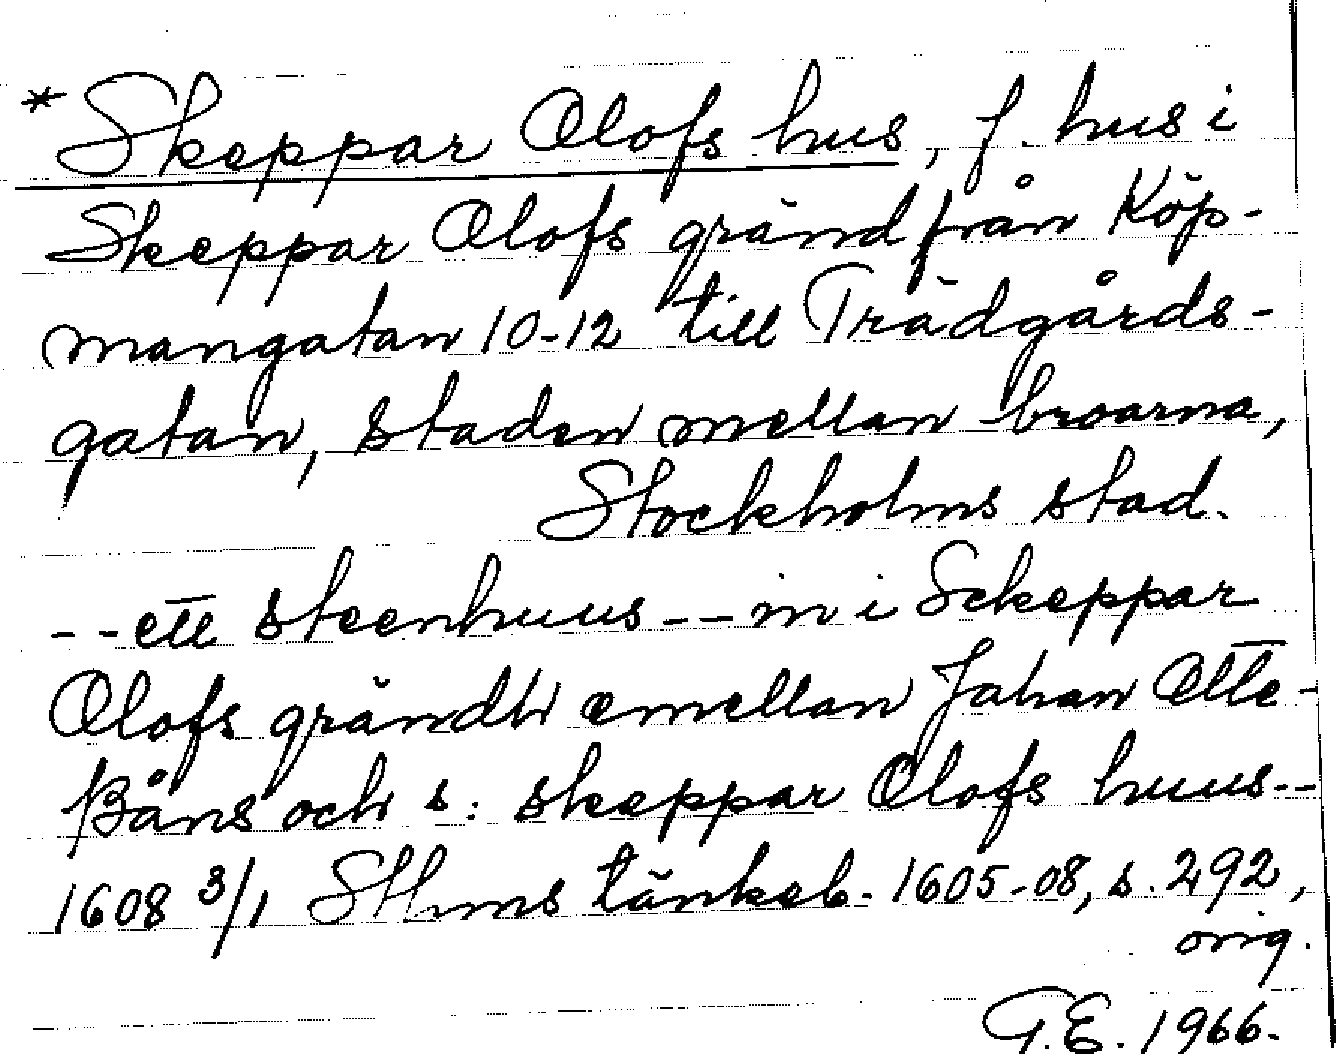 * Skeppar Olofs hus, f. hus i
Skeppar Olofs gränd från Köp-
mangatan 10-12 till Trädgårds-
gatan, staden mellan broarna,
Stockholms stad.
--ett steenhuus -- in i Sckeppar
Olofs grändh emellan Johan Otte-
Båns och s: skeppar Olofs huus--
1608 3/1 Sthms tänkeb. 1605-08, s. 292,
orig.
G.E. 1966.